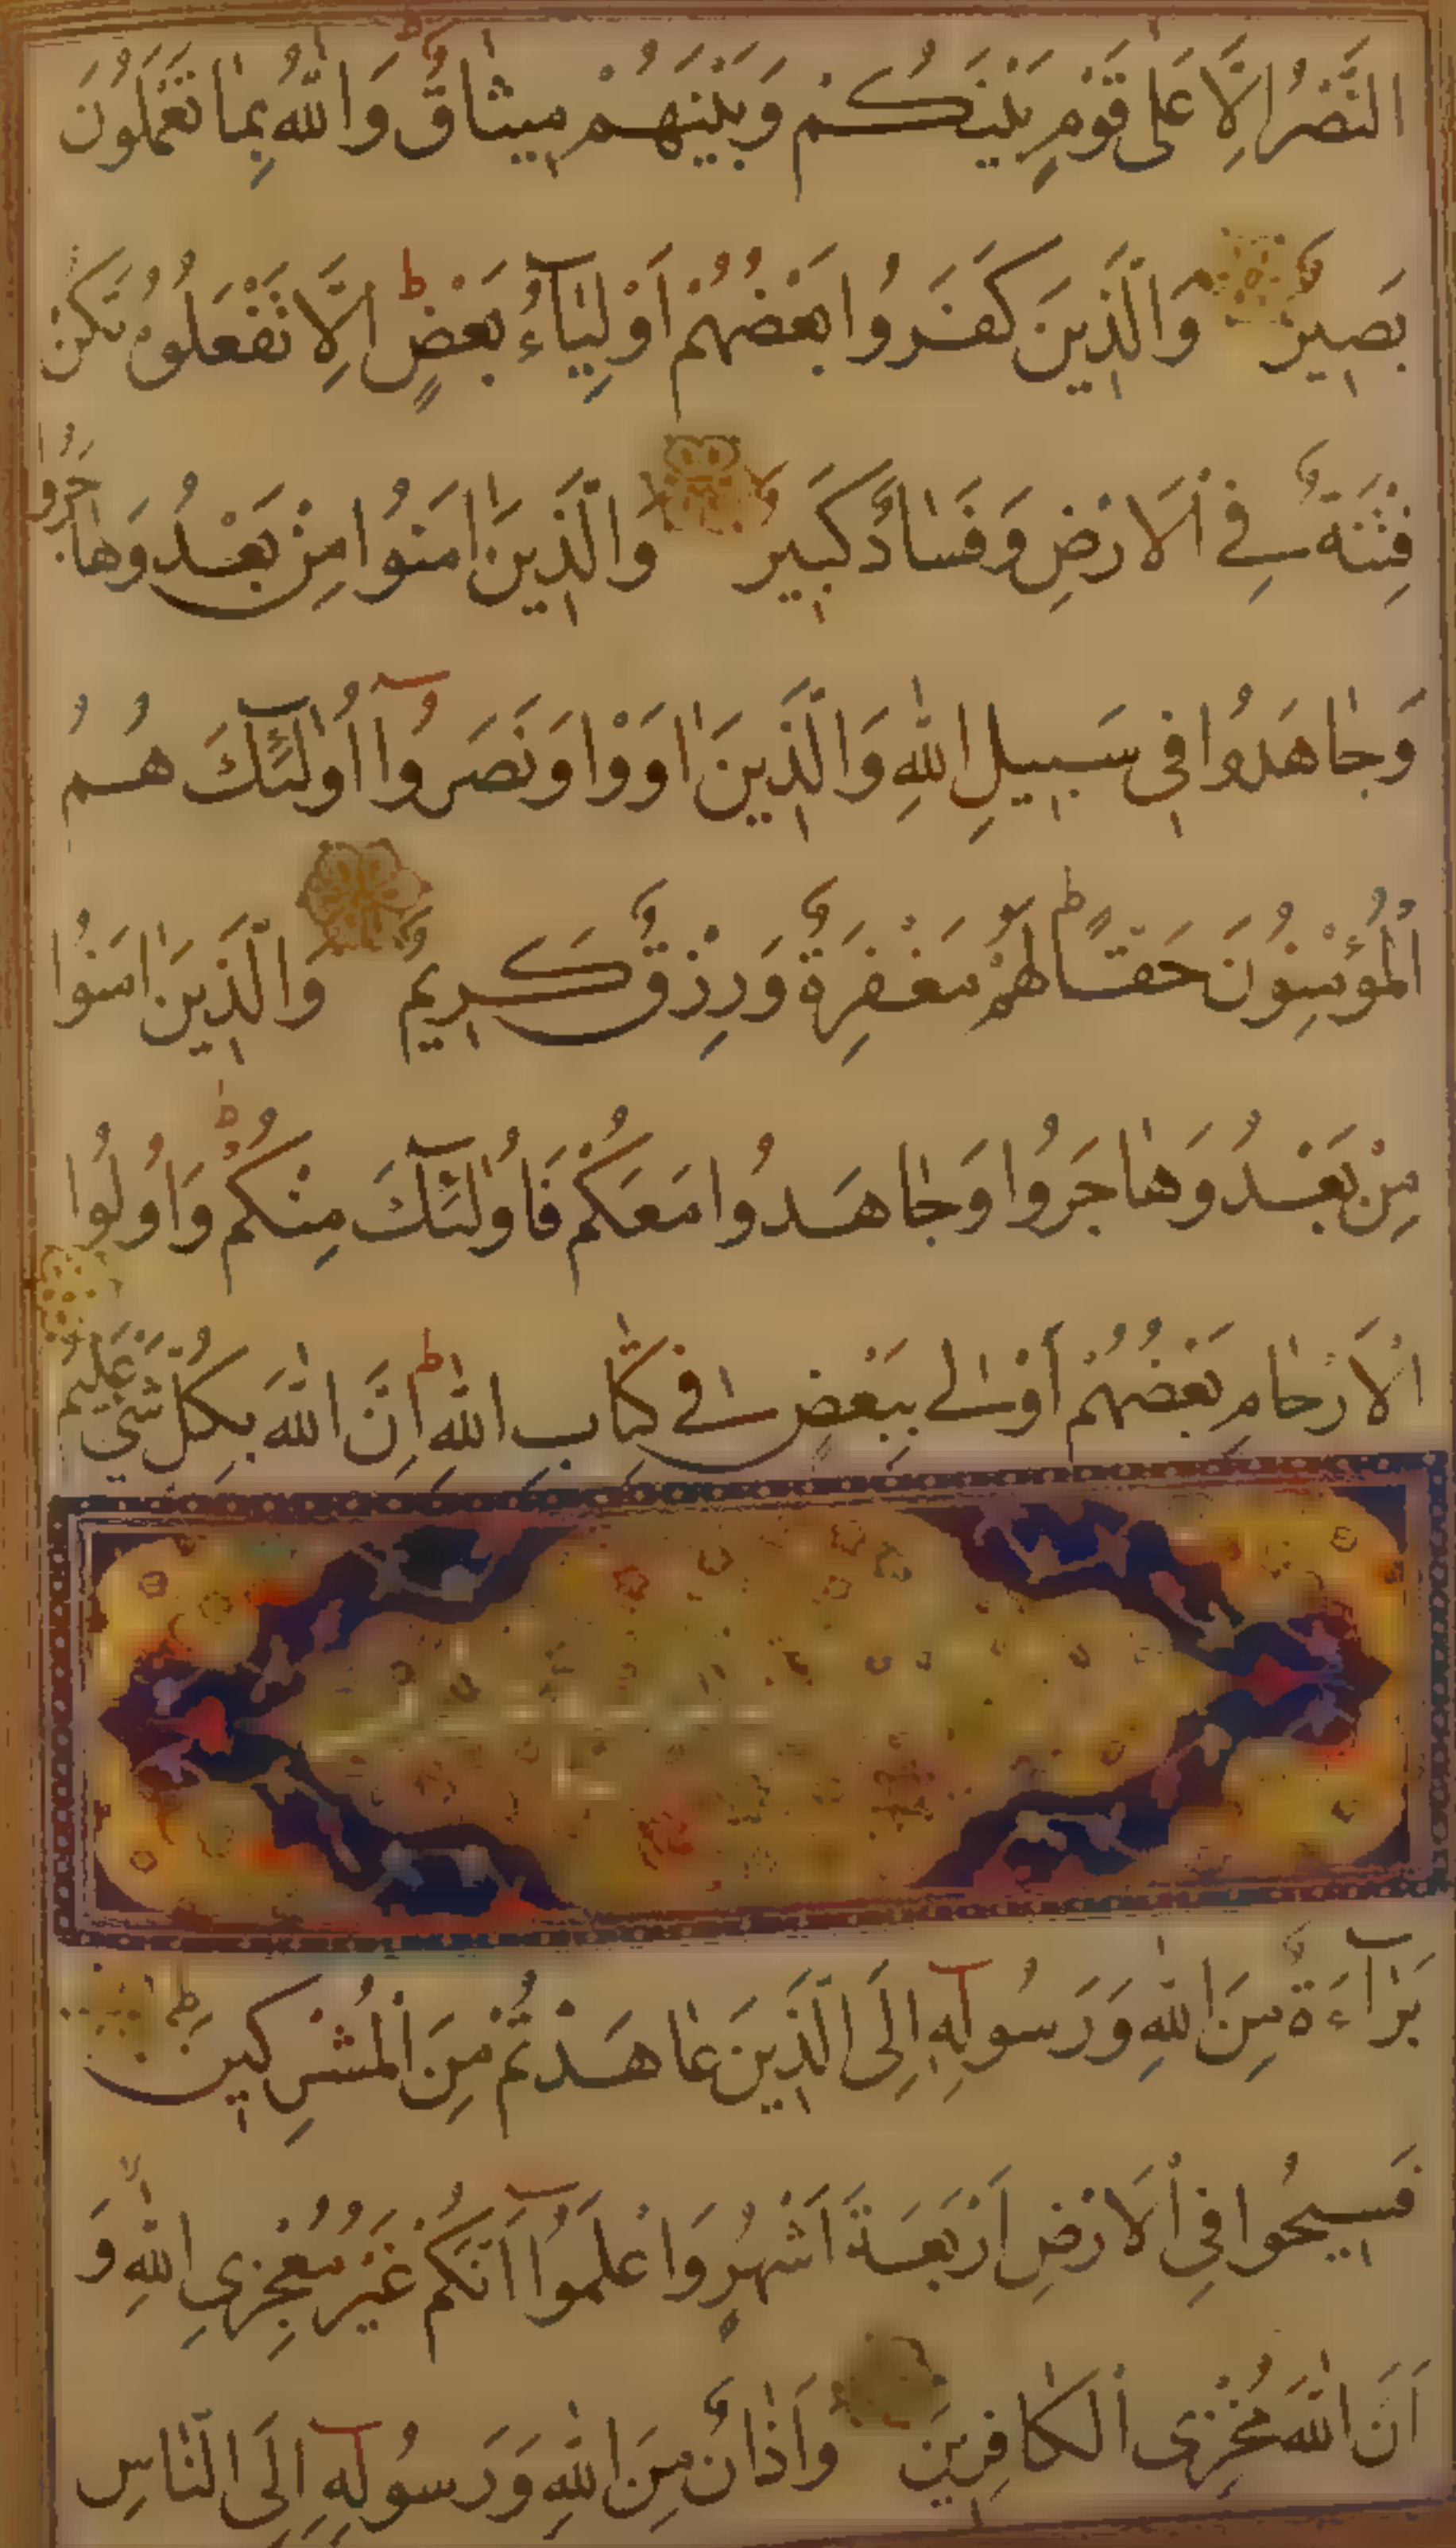 النَّصْرُ اِلَّا عَلٰى قَوْمٍ بَيْنَكُمْ وَبَيْنَهُمْ مِيثَاقٌ وَاللّٰهُ بِمَا تَعْمَلُونَ
بَصِيرٌ وَالَّذِينَ كَفَرُوا بَعْضُهُمْ اَوْلِيَآءُ بَعْضٍ اِلَّا تَفْعَلُوهُ تَكُنْ
فِتْنَةٌ فِي الْاَرْضِ وَفَسَادٌ كَبِيرٌ وَالَّذِينَ اٰمَنُوا مِنْ بَعْدُ وَهَاجَرُوا
وَجَاهَدُوا فِي سَبِيلِ اللّٰهِ وَالَّذِينَ اٰوَوْا وَنَصَرُوٓا اُولٰٓئِكَ هُمُ
الْمُؤْمِنُونَ حَقًّا لَهُمْ مَغْفِرَةٌ وَرِزْقٌ كَرِيمٌ وَالَّذِينَ اٰمَنُوا
مِنْ بَعْدُ وَهَاجَرُوا وَجَاهَدُوا مَعَكُمْ فَاُولٰٓئِكَ مِنْكُمْ وَاُولُوا
الْاَرْحَامِ بَعْضُهُمْ اَوْلٰى بِبَعْضٍ فِي كِتَابِ اللّٰهِ اِنَّ اللّٰهَ بِكُلِّ شَيْءٍ عَلِيمٌ
بَرَآءَةٌ مِنَ اللّٰهِ وَرَسُولِهٓ اِلَى الَّذِينَ عَاهَدْتُمْ مِنَ الْمُشْرِكِينَ
فَسِيحُوا فِي الْاَرْضِ اَرْبَعَةَ اَشْهُرٍ وَاعْلَمُوٓا اَنَّكُمْ غَيْرُ مُعْجِزِي اللّٰهِ وَ
اَنَّ اللّٰهَ مُخْزِي الْكَافِرِينَ وَاَذَانٌ مِنَ اللّٰهِ وَرَسُولِهٓ اِلَى النَّاسِ